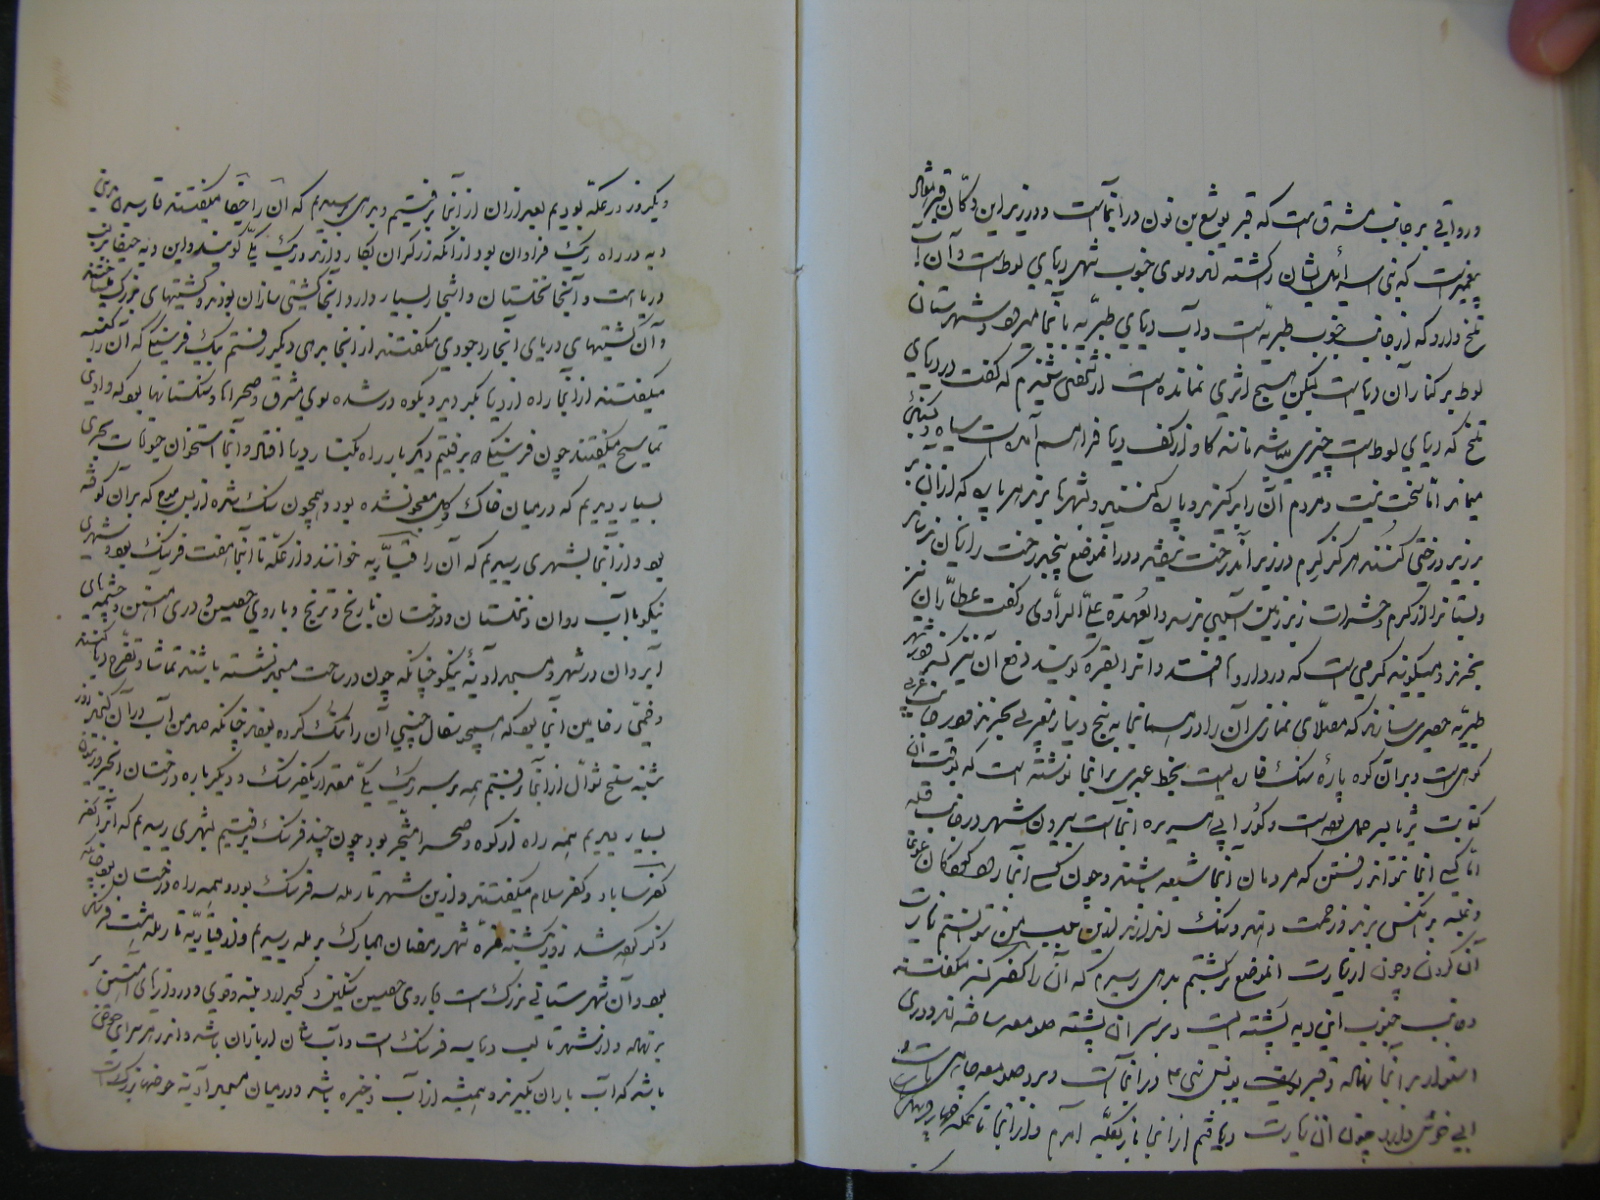 ورواقی بر جانب مشرق است که قبر یوشع بن نون در آنجاست و در زیر این دکان قبر هفتاد
پیغمبرست که بنی اسرائیل ایشان را کشته اند و سوی جنوب شهر دریای لوط است و آن آب
تلخ دارد که از جانب جنوب طبریه است و آب دریای طبریه بآنجا میرود و شهرستان
لوط بر کنار آن دریاست لیکن هیچ اثری نمانده است از شخصی شنیدم که گفت در دریای
تلخ که دریای لوط است چیزی میباشد مانند گاو از کف دریا فراهم آمده است سیاه
میماند اما سخت نیست و مردم آن را برگیرند و پاره کنند و بشهرها برند هر پاره که از آن در
بزیر درختی کنند هرگز کرم در زیر آن درخت نیفتد و در آن موضع بیخ درخت را زیان نرساند
و بستان را از کرم و حشرات زیر زمین آسیبی نرسد والعهدة علی الراوی و گفت عطاران نیز
بخرند و میگویند کرمی است که در داروها افتد و آنرا نقره گویند دفع آن نیز کند
طبریه حصیری سازند که مصلای نمازی آن را در همانجا به پنج دینار مغربی بخرند و در جانب غربی
کوهی است و بر آن کوه پارهٔ سنگ خاره است بخط عبری بر آنجا نوشته است که بوقت آن
کتابت ثریا بسر حمل بوده است و گور ابی هریره آنجاست بیرون شهر در جانب قبله
اما کسی آنجا نتواند رفتن که مردمان آنجا شیعه باشند و چون کسی آنجا رود کودکان غوغا
و غلبه بر آنکس برند و زحمت دهند و سنگ اندازند از این سبب من نتوانستم زیارت
آن کردن و چون از زیارت آن موضع برگشتم بدهی رسیدم که آن را کفر کنه میگفتند
و جانب جنوب این دیه پشته ایست و بر سر آن پشته صومعه ساخته اند و دری
استوار بر آنجا نهاده و قبر یونس نبی ع در آنجاست و بر در صومعه چاهی است و
آبی خوش دارد چون آن زیارت دریافتم از آنجا باز بعکه آمدم و از آنجا تا عکه چهار فرسنگ
و یکروز در عکه بودیم بعد از آن از آنجا برفتیم و بدهی رسیدیم که آن را حیفا میگفتند تا رسیدن بدین
دیه در راه ریگ فراوان بود از آنکه زرگران بکار دارند و ریگ مکی گویند و این دیه حیفا بر لب
دریاست و آنجا نخلستان و اشجار بسیار دارد آنجا کشتی سازان بودند و کشتیهای بزرگ میساختند
و آن کشتیهای دریای آنجا را جودی میگفتند از آنجا بدهی دیگر رفتم بیک فرسنگ که آن را کنیسه
میگفتند از آنجا راه از دریا بگردید و بکوه در شده سوی مشرق و صحراها و سنگستانها بود که وادی
تماسیح میگفتند چون فرسنگی دو برفتیم دیگر بار راه بکنار دریا افتاد و آنجا استخوان حیوانات بحری
بسیار دیدیم که در میان خاک و گل معجون شده بود و همچون سنگ شده از بس موج که بر آن کوفته
بود و از آنجا بشهری رسیدیم که آن را قیساریه خوانند و از عکه تا آنجا هفت فرسنگ بود و شهری
نیکو با آب روان و نخلستان و درختان نارنج و ترنج و باروی حصین و دری آهنین و چشمهای
آب روان در شهر و مسجد آدینهٔ نیکو چنانکه چون در ساحت مسجد نشسته باشند تماشا و تفرج دریا کنند
و خمی رخامین آنجا بود که همچو سفال چینی آن را تنک کرده بودند چنانکه صد من آب در آن گنجد روز
شنبه سلخ شوال از آنجا رفتیم همه بر سر ریگ مکی مقدار یکفرسنگ و دیگر باره درختان انجیر و زیتون
بسیار دیدیم همه راه از کوه و صحرا مشجر بود چون چند فرسنگ برفتیم بشهری رسیدیم که آنرا کفر
کفر سابا و کفر سلام میگفتند و از این شهر تا رمله سه فرسنگ بود و همه راه درختان بود چنانکه
ذکر کرده شد روز یکشنبه غرهٔ شهر رمضان المبارک برمله رسیدیم و از قیساریه تا رمله هشت فرسنگ
بود و آن شهرستانی بزرگ است و باروی حصین از سنگ و گچ دارد بلند و قوی و دروازهای آهنین بر
بر نهاده و از شهر تا لب دریا سه فرسنگ است و آب ایشان از باران باشد و اندر هر سرای حوضی
باشد که آب باران بگیرند و همیشه از آن آب ذخیره باشد و در میان مسجد آدینه حوضها بزرگ است